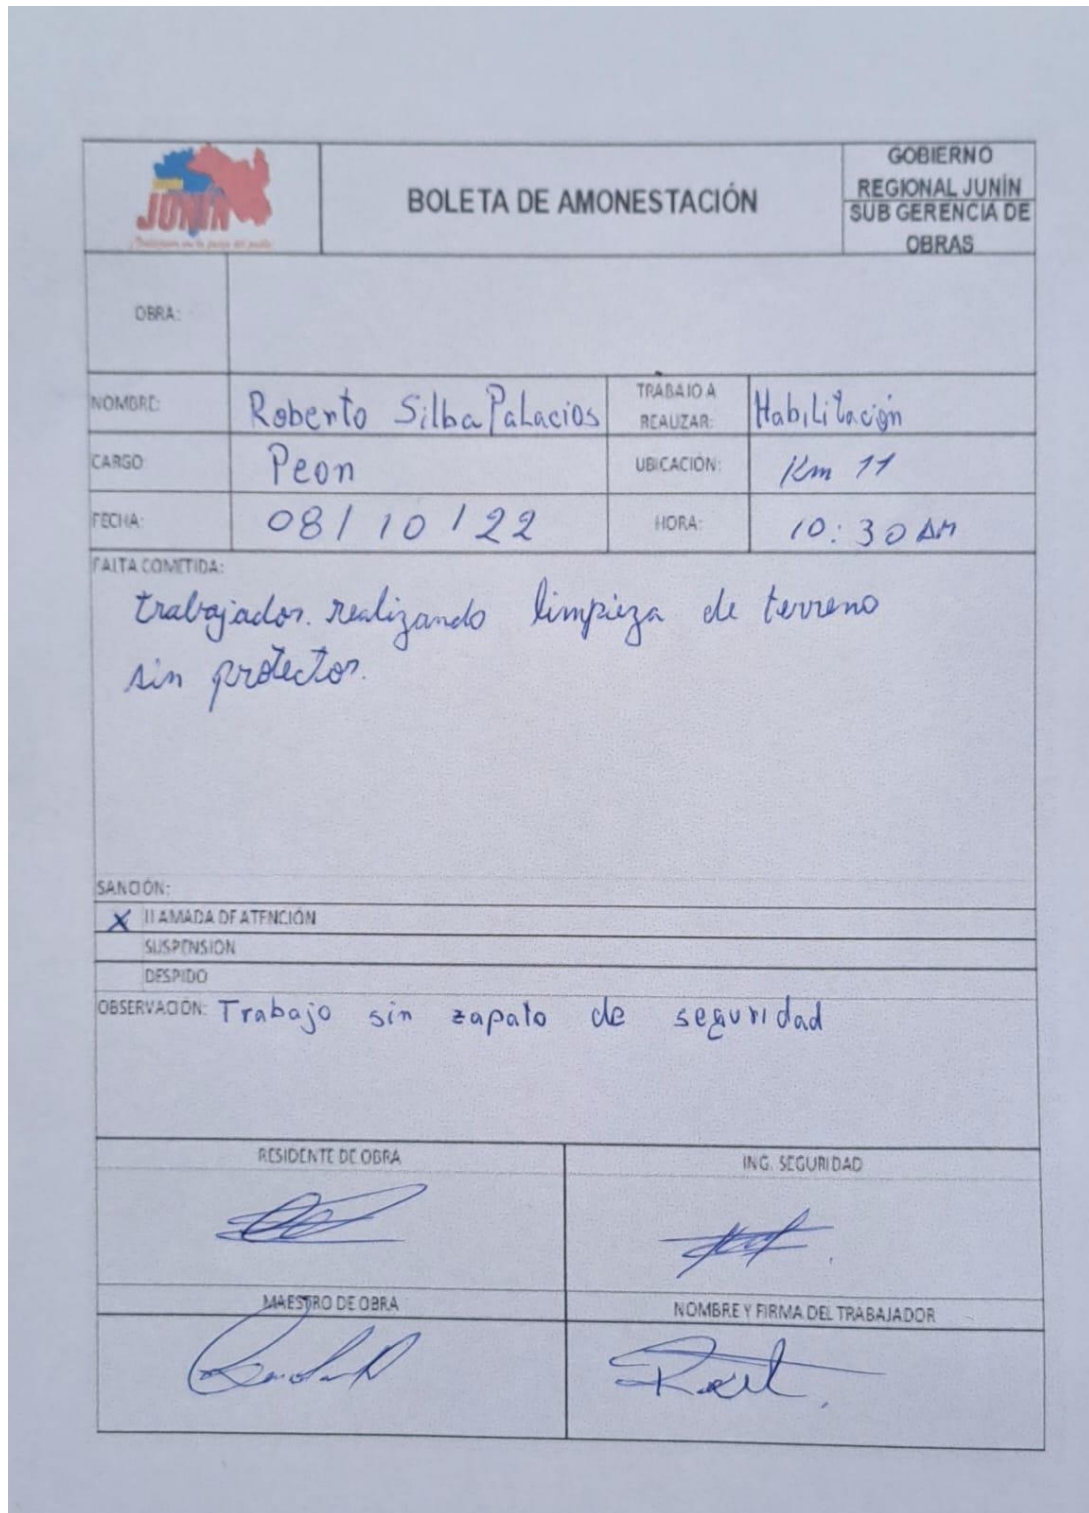 JUNÍN
BOLETA DE AMONESTACIÓN
GOBIERNO
REGIONAL JUNÍN
SUB GERENCIA DE
OBRAS
OBRA:
NOMBRE: Roberto Silba Palacios
TRABAJO A
REALIZAR: Habilitación
CARGO: Peon
UBICACIÓN: Km 11
FECHA: 08/10/22
HORA: 10:30 AM
FALTA COMETIDA:
trabajador. realizando limpieza de terreno
sin protector.
SANCIÓN:
X LLAMADA DE ATENCIÓN
SUSPENSION
DESPIDO
OBSERVACIÓN: Trabajo sin zapato de seguridad
RESIDENTE DE OBRA
ING. SEGURIDAD
MAESTRO DE OBRA
NOMBRE Y FIRMA DEL TRABAJADOR